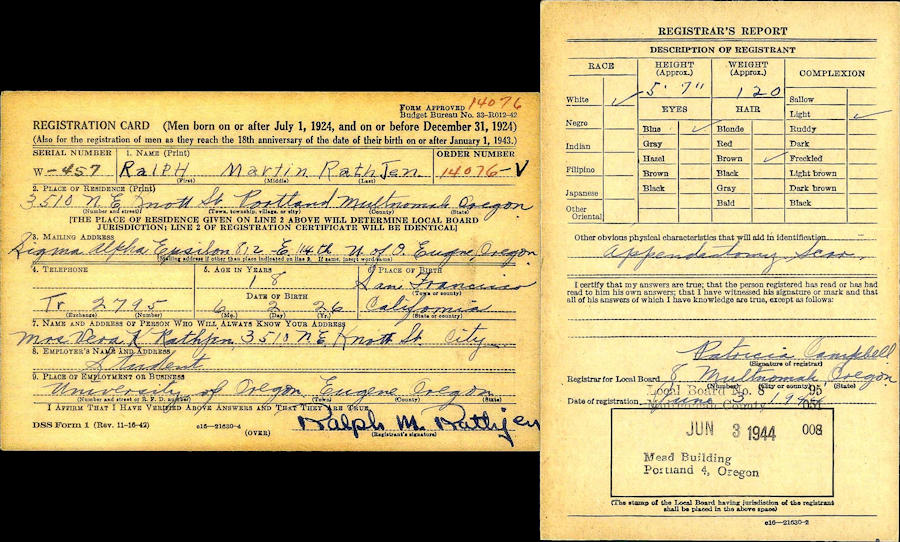 FORM APPROVED 14076
Budget Bureau No. 33-R012-42
REGISTRATION CARD (Men born on or after July 1, 1924, and on or before December 31, 1924)
(Also for the registration of men as they reach the 18th anniversary of the date of their birth on or after January 1, 1943.)
SERIAL NUMBER 1. NAME (Print) ORDER NUMBER
W-457 RalpH Martin RathJen 14076-V
(First) (Middle) (Last)
2. PLACE OF RESIDENCE (Print)
3510 N.E. Knott St. Portland Multnomah Oregon
(Number and street) (Town, township, village, or city) (County) (State)
[THE PLACE OF RESIDENCE GIVEN ON LINE 2 ABOVE WILL DETERMINE LOCAL BOARD
JURISDICTION; LINE 2 OF REGISTRATION CERTIFICATE WILL BE IDENTICAL]
3. MAILING ADDRESS
Sigma Alpha Epsilon 812-E. 14th U. of O. Eugene, Oregon
[Mailing address if other than place indicated on line 2. If same, insert word same]
4. TELEPHONE 5. AGE IN YEARS 6. PLACE OF BIRTH
18 San Francisco
DATE OF BIRTH (Town or county)
Tr 2795 6 2 26 California
(Exchange) (Number) (Mo.) (Day) (Yr.) (State or country)
7. NAME AND ADDRESS OF PERSON WHO WILL ALWAYS KNOW YOUR ADDRESS
Mrs Vera K Rathjen, 3510 N.E. Knott St. City
8. EMPLOYER'S NAME AND ADDRESS
Student
9. PLACE OF EMPLOYMENT OR BUSINESS
University of Oregon, Eugene, Oregon
(Number and street or R. F. D. number) (Town) (County) (State)
I AFFIRM THAT I HAVE VERIFIED ABOVE ANSWERS AND THAT THEY ARE TRUE.
DSS Form 1 (Rev. 11-16-42) c16-21630-4 Ralph M. Rathjen
(OVER) (Registrant's signature)
REGISTRAR'S REPORT
DESCRIPTION OF REGISTRANT
RACE HEIGHT (Approx.) WEIGHT (Approx.) COMPLEXION
5' 7" 120
White ✓ Sallow
EYES HAIR Light ✓
Negro Blue ✓ Blonde Ruddy
Indian Gray Red Dark
Hazel Brown ✓ Freckled
Filipino Brown Black Light brown
Japanese Black Gray Dark brown
Other Oriental Bald Black
Other obvious physical characteristics that will aid in identification
Appendectomy Scar.
I certify that my answers are true; that the person registered has read or has had
read to him his own answers; that I have witnessed his signature or mark and that
all of his answers of which I have knowledge are true, except as follows:
Patricia Campbell
(Signature of registrar)
Registrar for Local Board 8 Multnomah, Oregon
(Number) (City or county) (State)
Local Board No. 8 95
Date of registration June 3, 1944
Multnomah County 051
JUN 3 1944 008
Mead Building
Portland 4, Oregon
(The stamp of the Local Board having jurisdiction of the registrant
shall be placed in the above space)
c16-21630-2